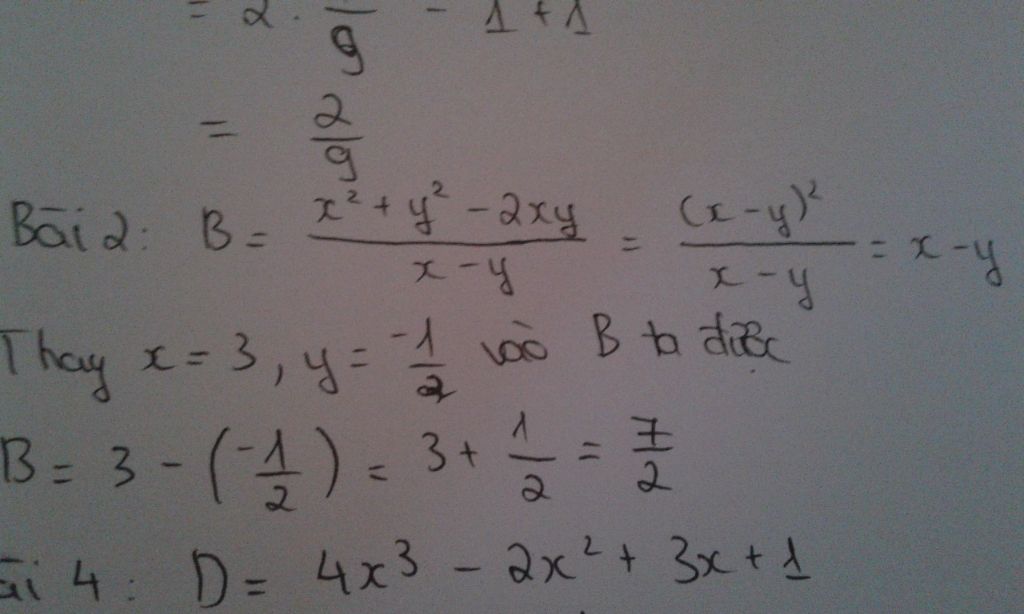 = 2 . /9 - 1 + 1
= 2/9
Bài 2: B = (x² + y² - 2xy)/(x - y) = (x - y)²/(x - y) = x - y
Thay x = 3, y = -1/2 vào B ta được
B = 3 - (-1/2) = 3 + 1/2 = 7/2
ài 4: D = 4x³ - 2x² + 3x + 1